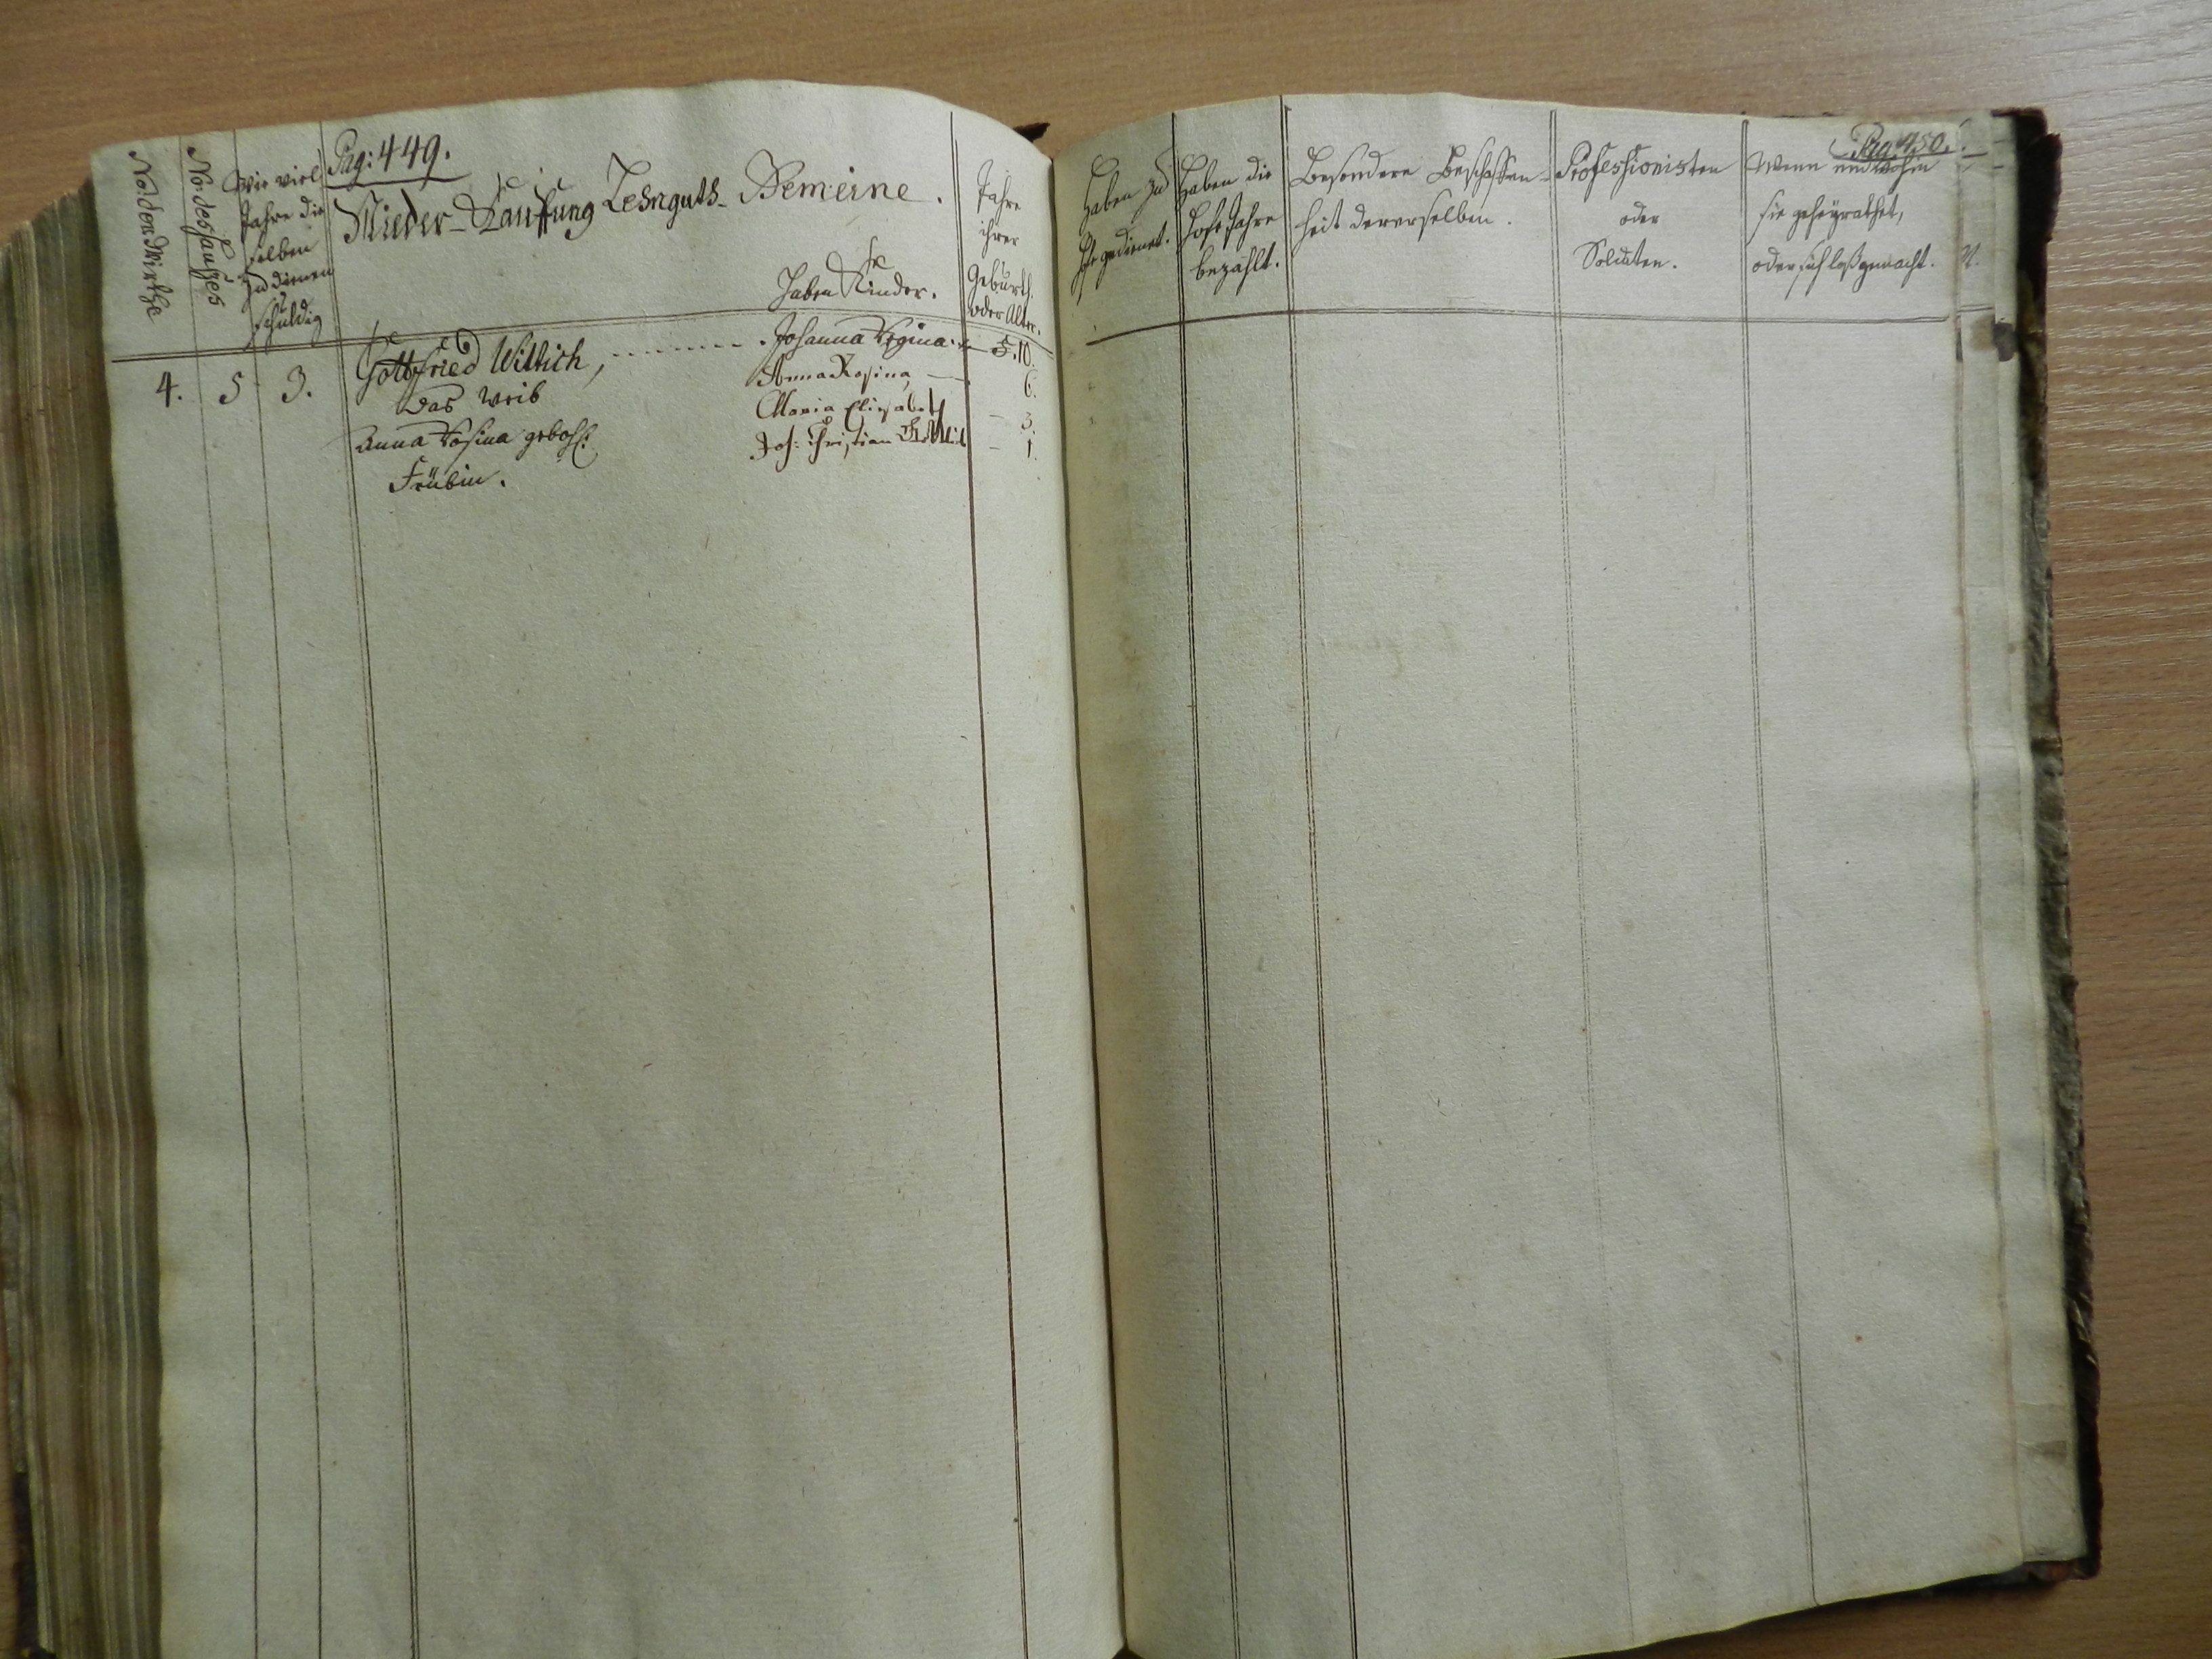 Pag: 449.
No: der Wirthe
No: des Haußes
Wie viel
Jahre die
selben
zu dienen
schuldig
Nieder-Kauffung Lehnguths-Gemeine.
Haben Kinder.
Jahre
ihrer
Geburth.
oder Alter.
4. 5 3. Gottfried Wittich, Johanna Regina 10.
Das Weib Anna Rosina, 6.
Anna Rosina gebohr: Maria Elisabeth 3.
Frübin. Joh: Christian 1.
Pag. 450.
Haben zu
Hofe gedienet.
Haben die
Hofe Jahre
bezahlt.
Besondere Beschaffen-
heit dererselben.
Professionisten
oder
Soldaten.
Wenn und wohin
sie geheyrathet,
oder sich loßgemacht.